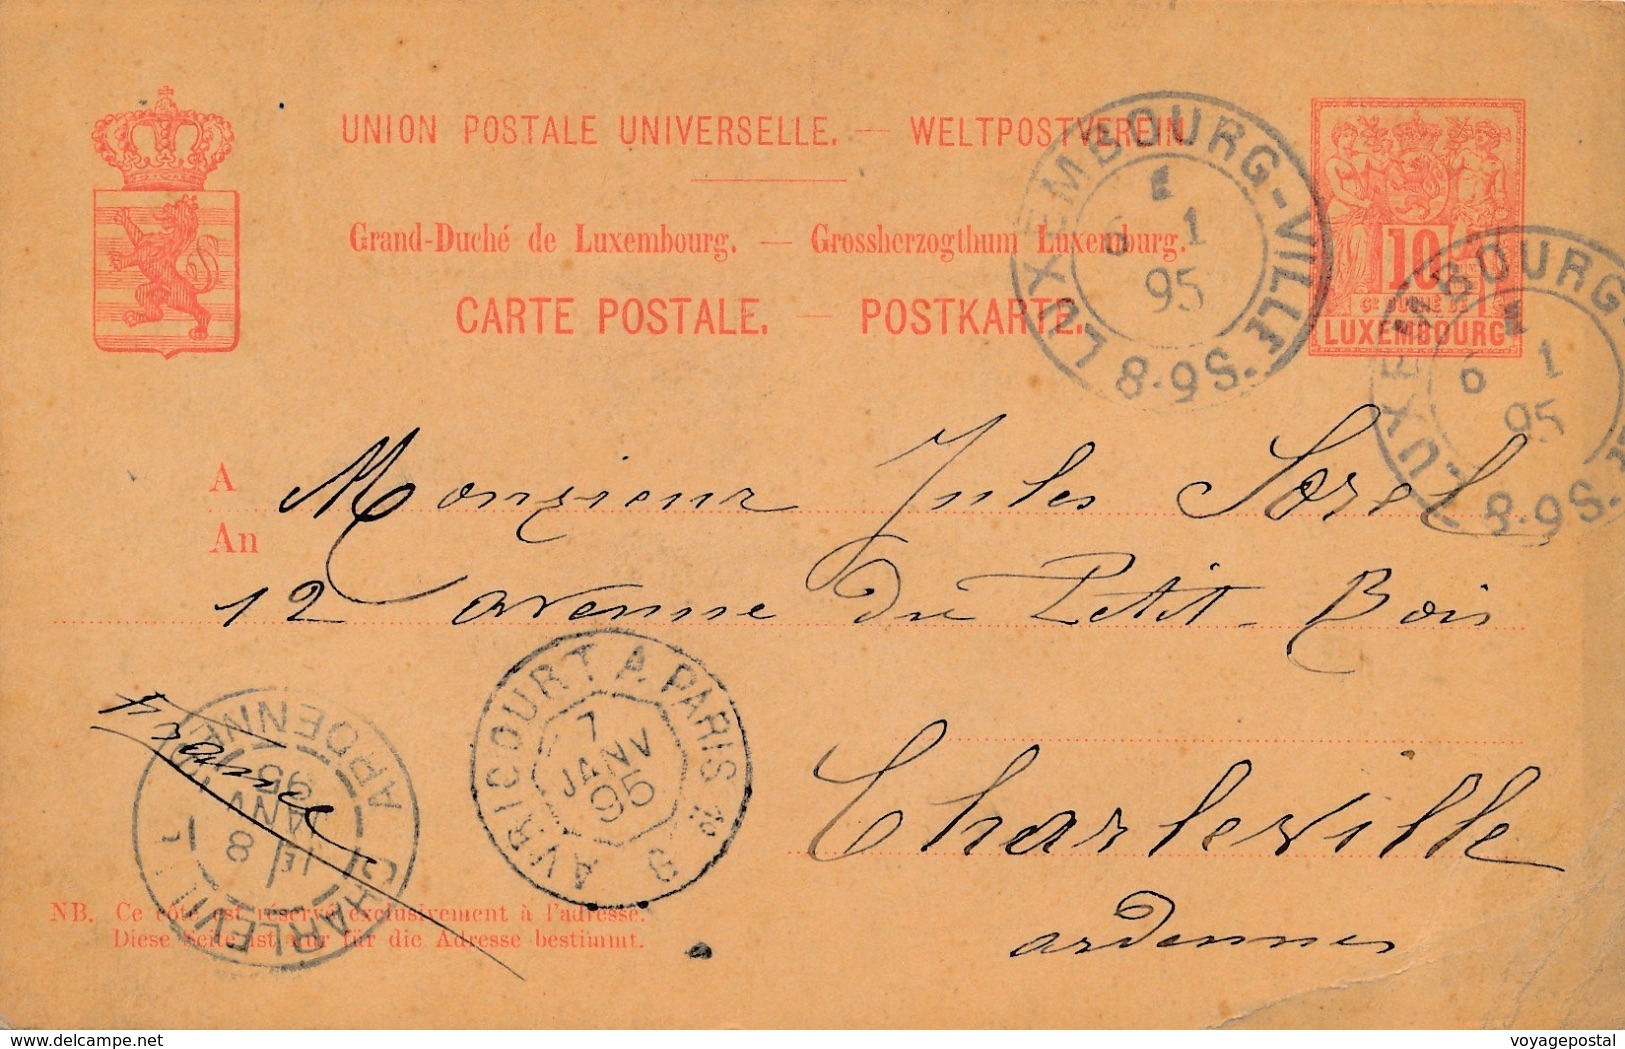 UNION POSTALE UNIVERSELLE. — WELTPOSTVEREIN.
Grand-Duché de Luxembourg. — Grossherzogthum Luxemburg.
CARTE POSTALE. — POSTKARTE.
10
GD DUCHÉ DE
LUXEMBOURG
LUXEMBOURG-VILLE
6 1
95
8-9S.
LUXEMBOURG
6 1
95
8-9S.
A Monsieur Jules Sorel
An
12 avenue du Petit-Bois
France
Charleville
ardennes
AVRICOURT A PARIS 2°
7
JANV
95
CHARLEVILLE
ARDENNES
1E
8
JANV
95
NB. Ce côté est réservé exclusivement à l'adresse.
Diese Seite ist nur für die Adresse bestimmt.
delcampe.net
voyagepostal